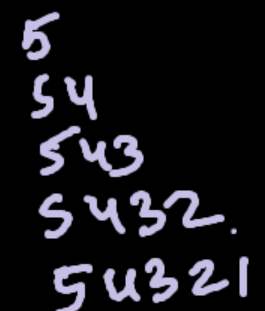 5
54
543
5432.
54321